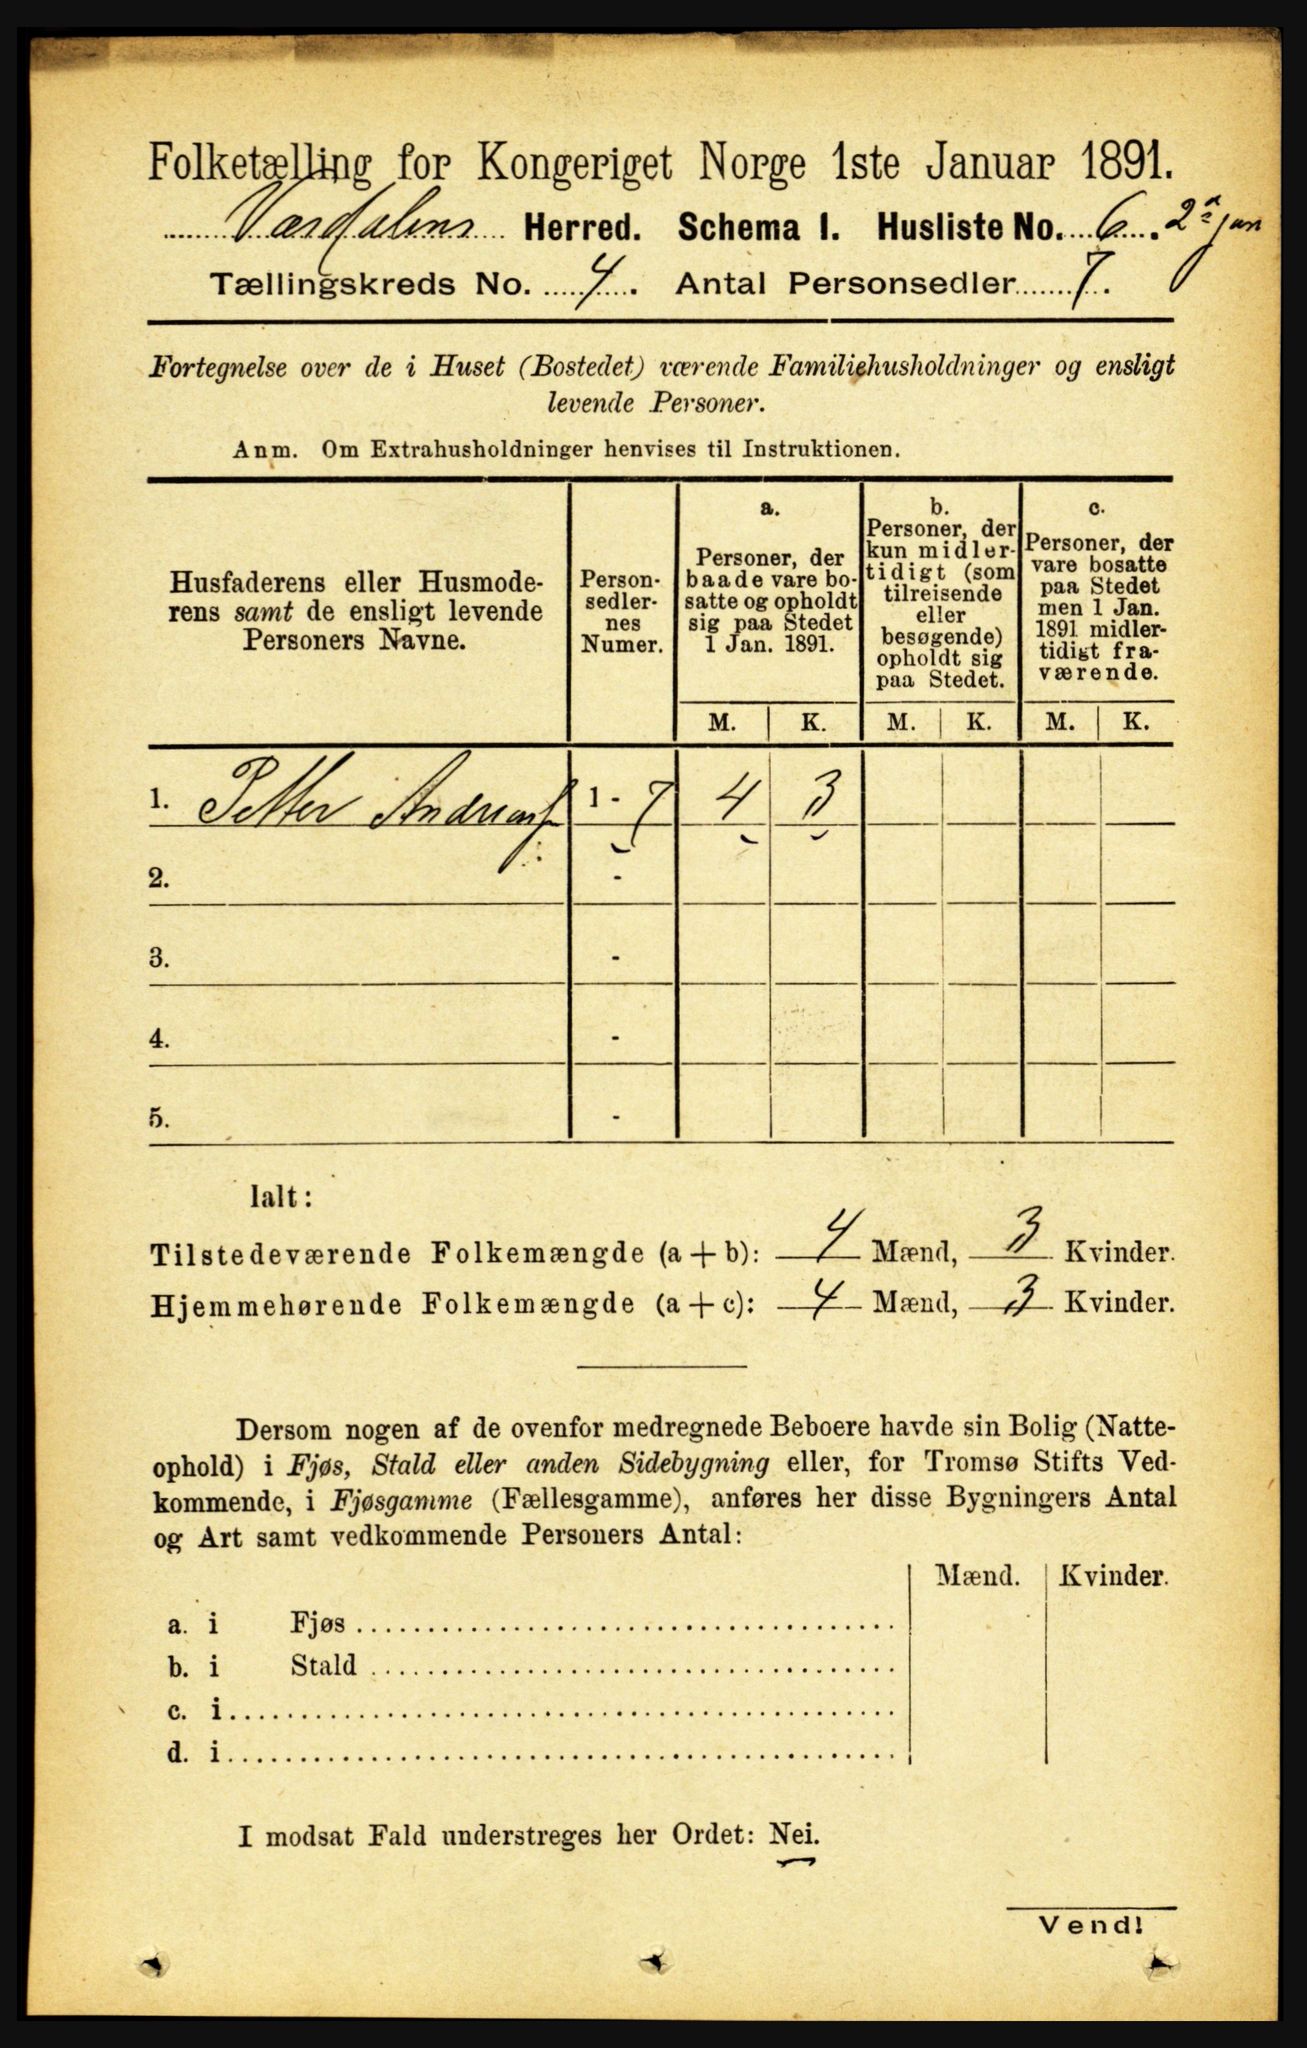 Folketælling for Kongeriget Norge 1ste Januar 1891.
Værdalens Herred. Schema I. Husliste No. 6. 2 jan
Tællingskreds No. 4. Antal Personsedler 7.
Fortegnelse over de i Huset (Bostedet) værende Familiehusholdninger og ensligt
levende Personer.
Anm. Om Extrahusholdninger henvises til Instruktionen.
Husfaderens eller Husmode-
rens samt de ensligt levende
Personers Navne.
Person-
sedler-
nes
Numer.
a.
Personer, der
baade vare bo-
satte og opholdt
sig paa Stedet
1 Jan. 1891.
b.
Personer, der
kun midler-
tidigt (som
tilreisende
eller
besøgende)
opholdt sig
paa Stedet.
c.
Personer, der
vare bosatte
paa Stedet
men 1 Jan.
1891 midler-
tidigt fra-
værende.
M. K. M. K. M. K.
1. Petter Andreas 1 - 7 4 3
2. -
3. -
4. -
5. -
Ialt:
Tilstedeværende Folkemængde (a + b): 4 Mænd, 3 Kvinder.
Hjemmehørende Folkemængde (a + c): 4 Mænd, 3 Kvinder.
Dersom nogen af de ovenfor medregnede Beboere havde sin Bolig (Natte-
ophold) i Fjøs, Stald eller anden Sidebygning eller, for Tromsø Stifts Ved-
kommende, i Fjøsgamme (Fællesgamme), anføres her disse Bygningers Antal
og Art samt vedkommende Personers Antal:
Mænd. Kvinder.
a. i Fjøs
b. i Stald
c. i
d. i
I modsat Fald understreges her Ordet: Nei.
Vend!